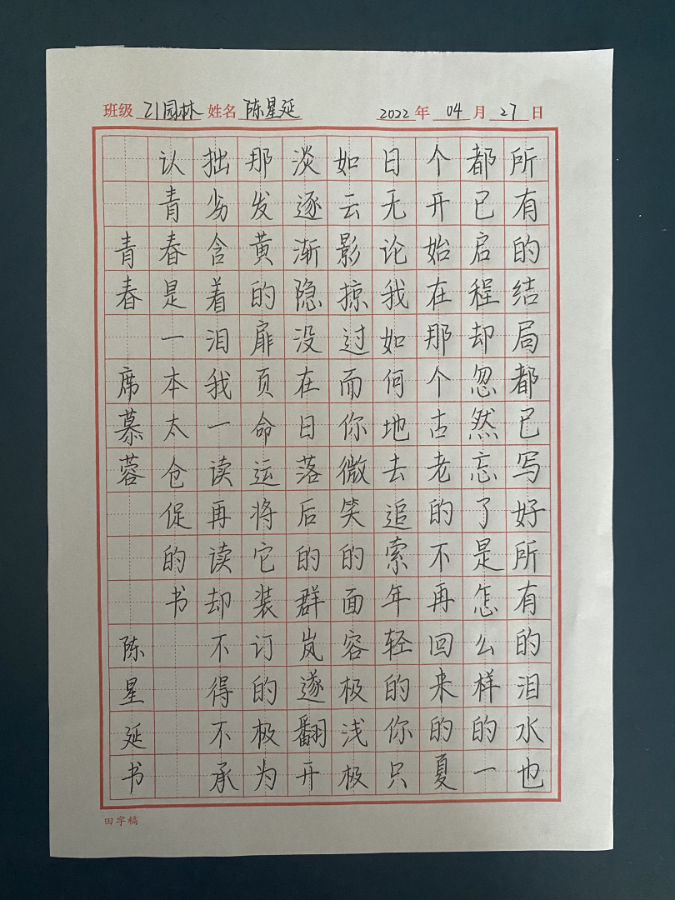 班级 21园林 姓名 陈星延 2022年 04月 27日
所有的结局都已写好所有的泪水也
都已启程却忽然忘了是怎么样的一
个开始在那个古老的不再回来的夏
日无论我如何地去追索年轻的你只
如云影掠过而你微笑的面容极浅极
淡逐渐隐没在日落后的群岚遂翻开
那发黄的扉页命运将它装订的极为
拙劣含着泪我一读再读却不得不承
认青春是一本太仓促的书
青春 席慕蓉 陈星延书
田字稿